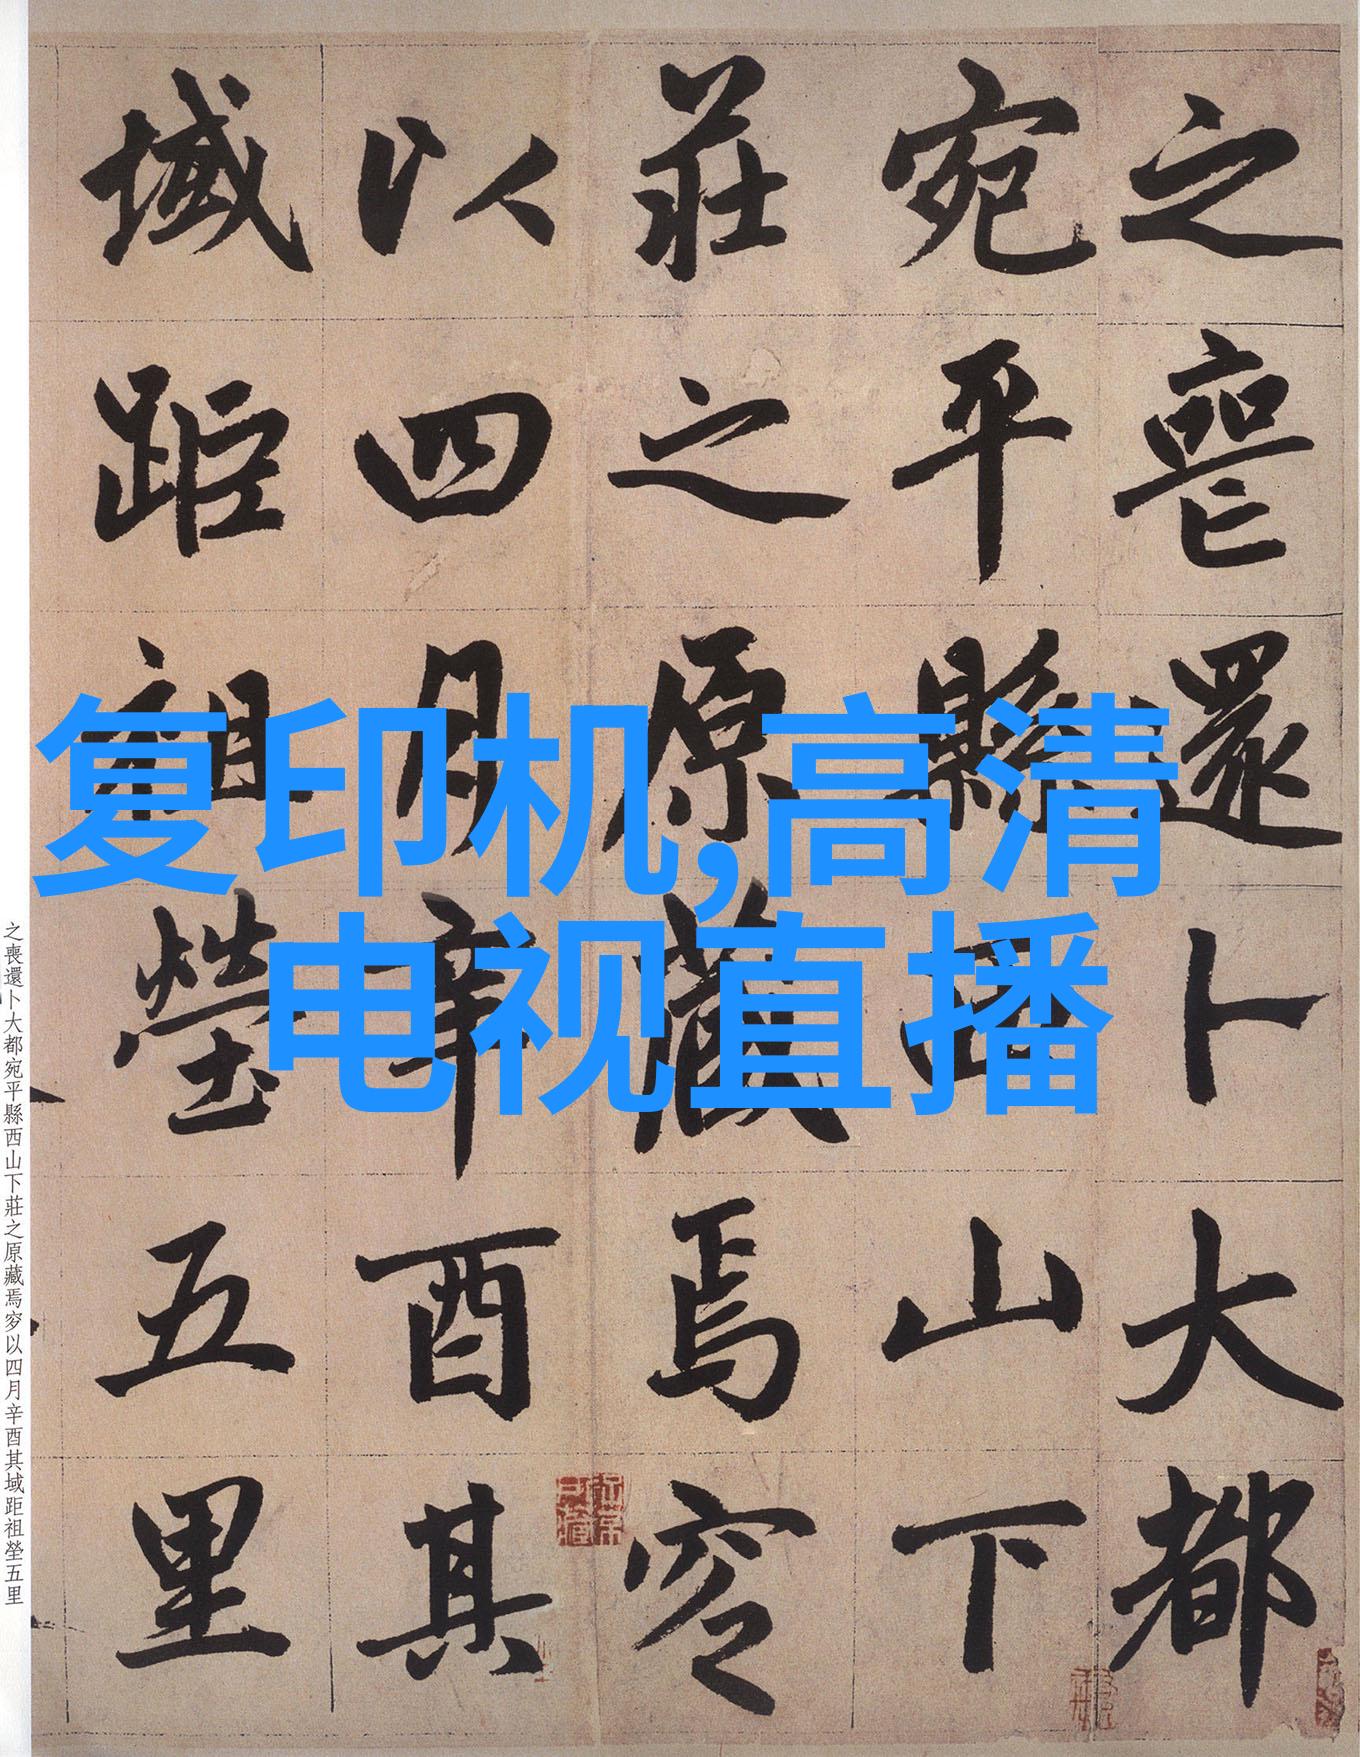 之喪還卜大都
宛平縣西山下
莊之原藏焉穸
以四月辛酉其
域距祖塋五里
复印机,高清
电视直播
之喪還卜大都宛平縣西山下莊之原藏焉穸以四月辛酉其域距祖塋五里